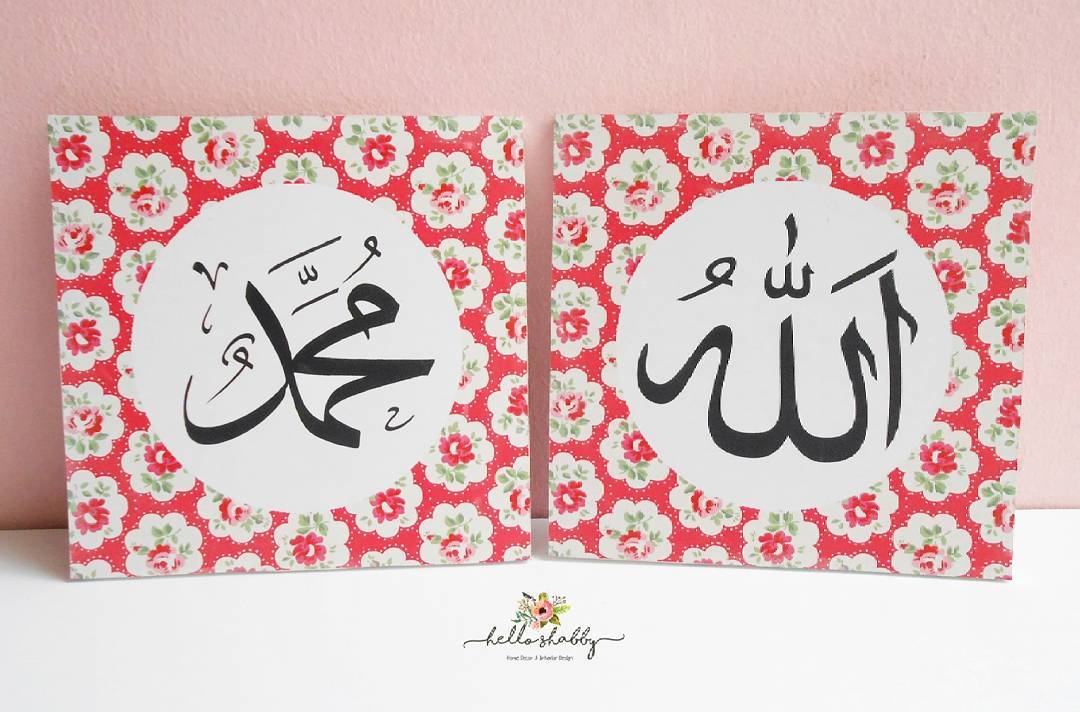 الله
محمد
hello shabby
Home Decor & Interior Design